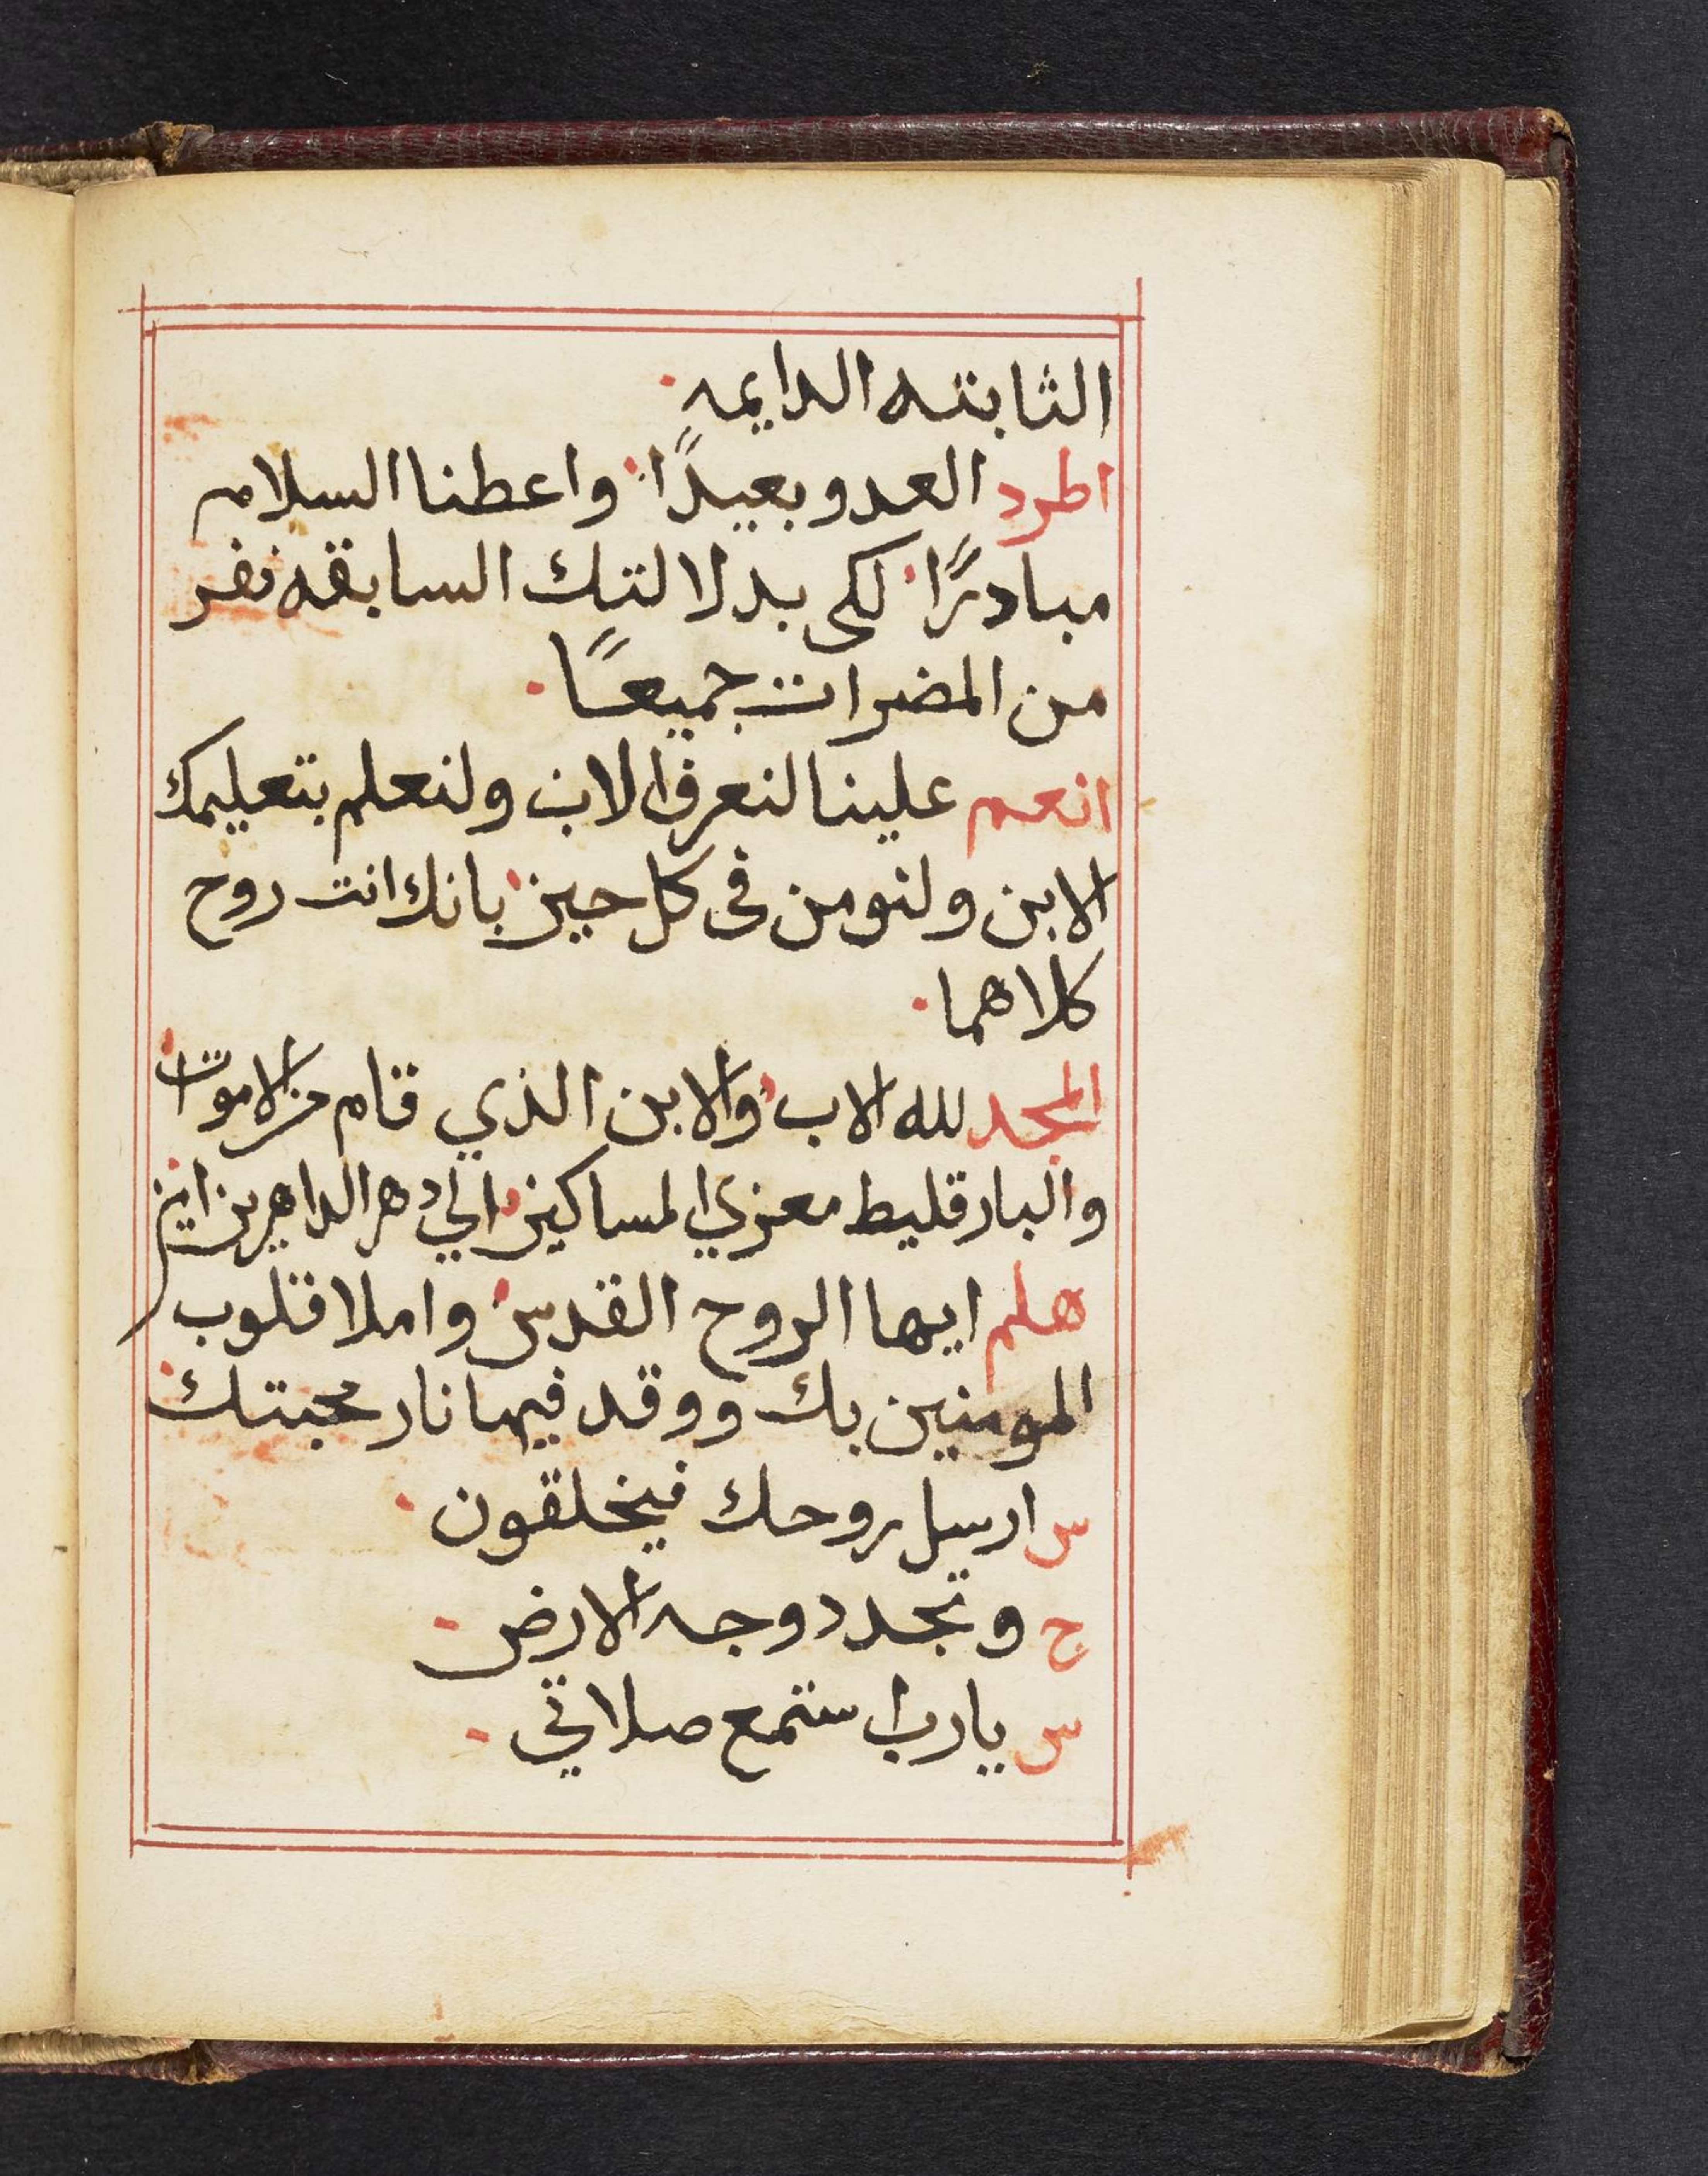 الثابته الدايمه.
اطرد العدو بعيدًا. واعطنا السلام
مبادرًا. لكى بدلالتك السابقه نفر
من المضرات جميعًا.
انعم علينا لنعرف الاب ولنعلم بتعليمك
الابن ولنومن فى كل حين. بانك انت روح
كلاهما.
المجد لله الاب. والابن الذي قام من الاموات.
والبارقليط معزي المساكين. الي دهر الداهرين امين.
هلم ايها الروح القدس. واملا قلوب
المومنين بك ووقد فيها نار محبتك.
س ارسل روحك فيخلقون.
ج وتجدد وجه الارض.
س يارب استمع صلاتي.